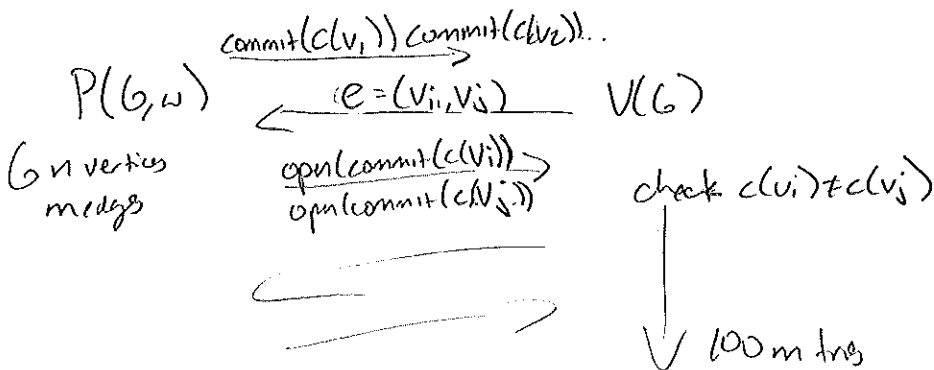 commit(c(v₁)) commit(c(v₂))...
P(G,w) e=(vᵢ,vⱼ) V(G)
G n vertices open(commit(c(vᵢ))
m edges open(commit(c(vⱼ)) check c(vᵢ)≠c(vⱼ)
100m